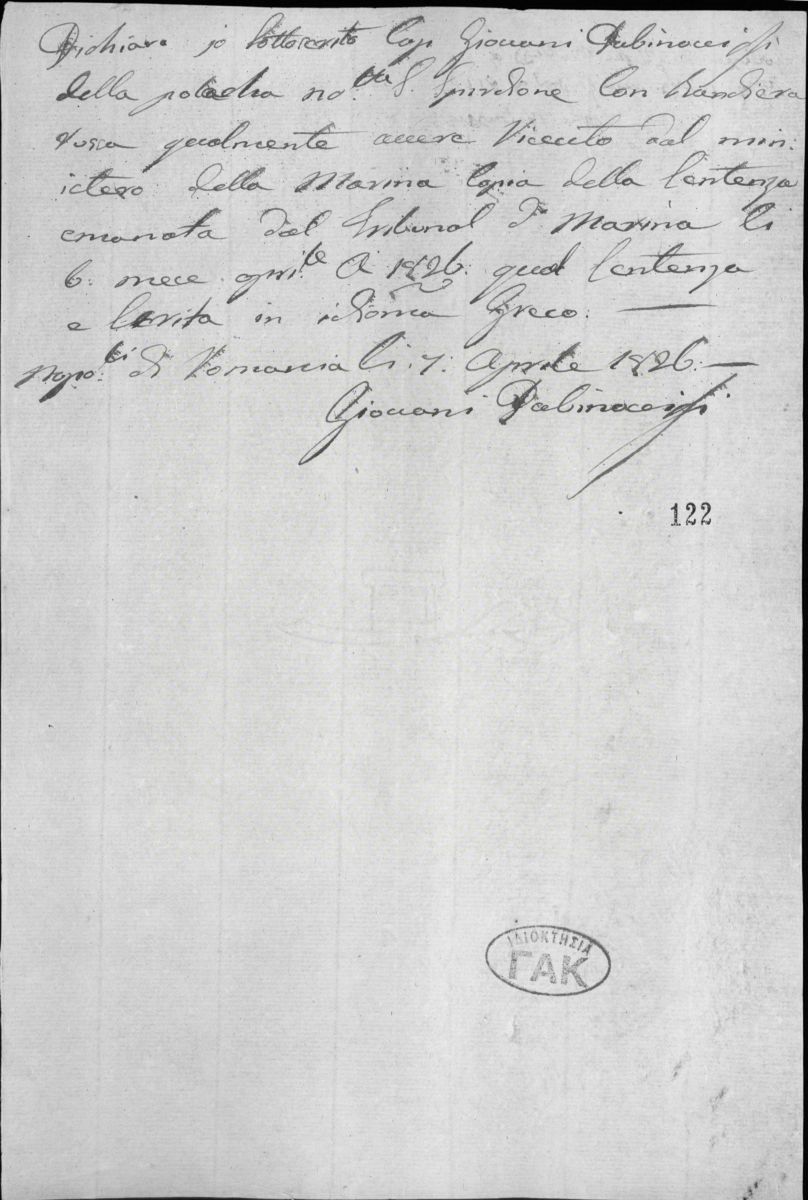 Dichiaro jo Sottoscrito Cap Giovani Dabinovissi
della polacha no.ta S. Spiridione Con bandiera
Russa qualmente avere Riceuto dal min:
istero della Marina Copia della Sentenza
emanata dal Tribunal di Marina li
6: mece apri:le A 1826: qual Sentenza
e Scrita in idioma Greco:
Napo:li di Romania li: 7: Aprile 1826:
Giovani Dabinovissi
122
ΙΔΙΟΚΤΗΣΙΑ
ΓΑΚ